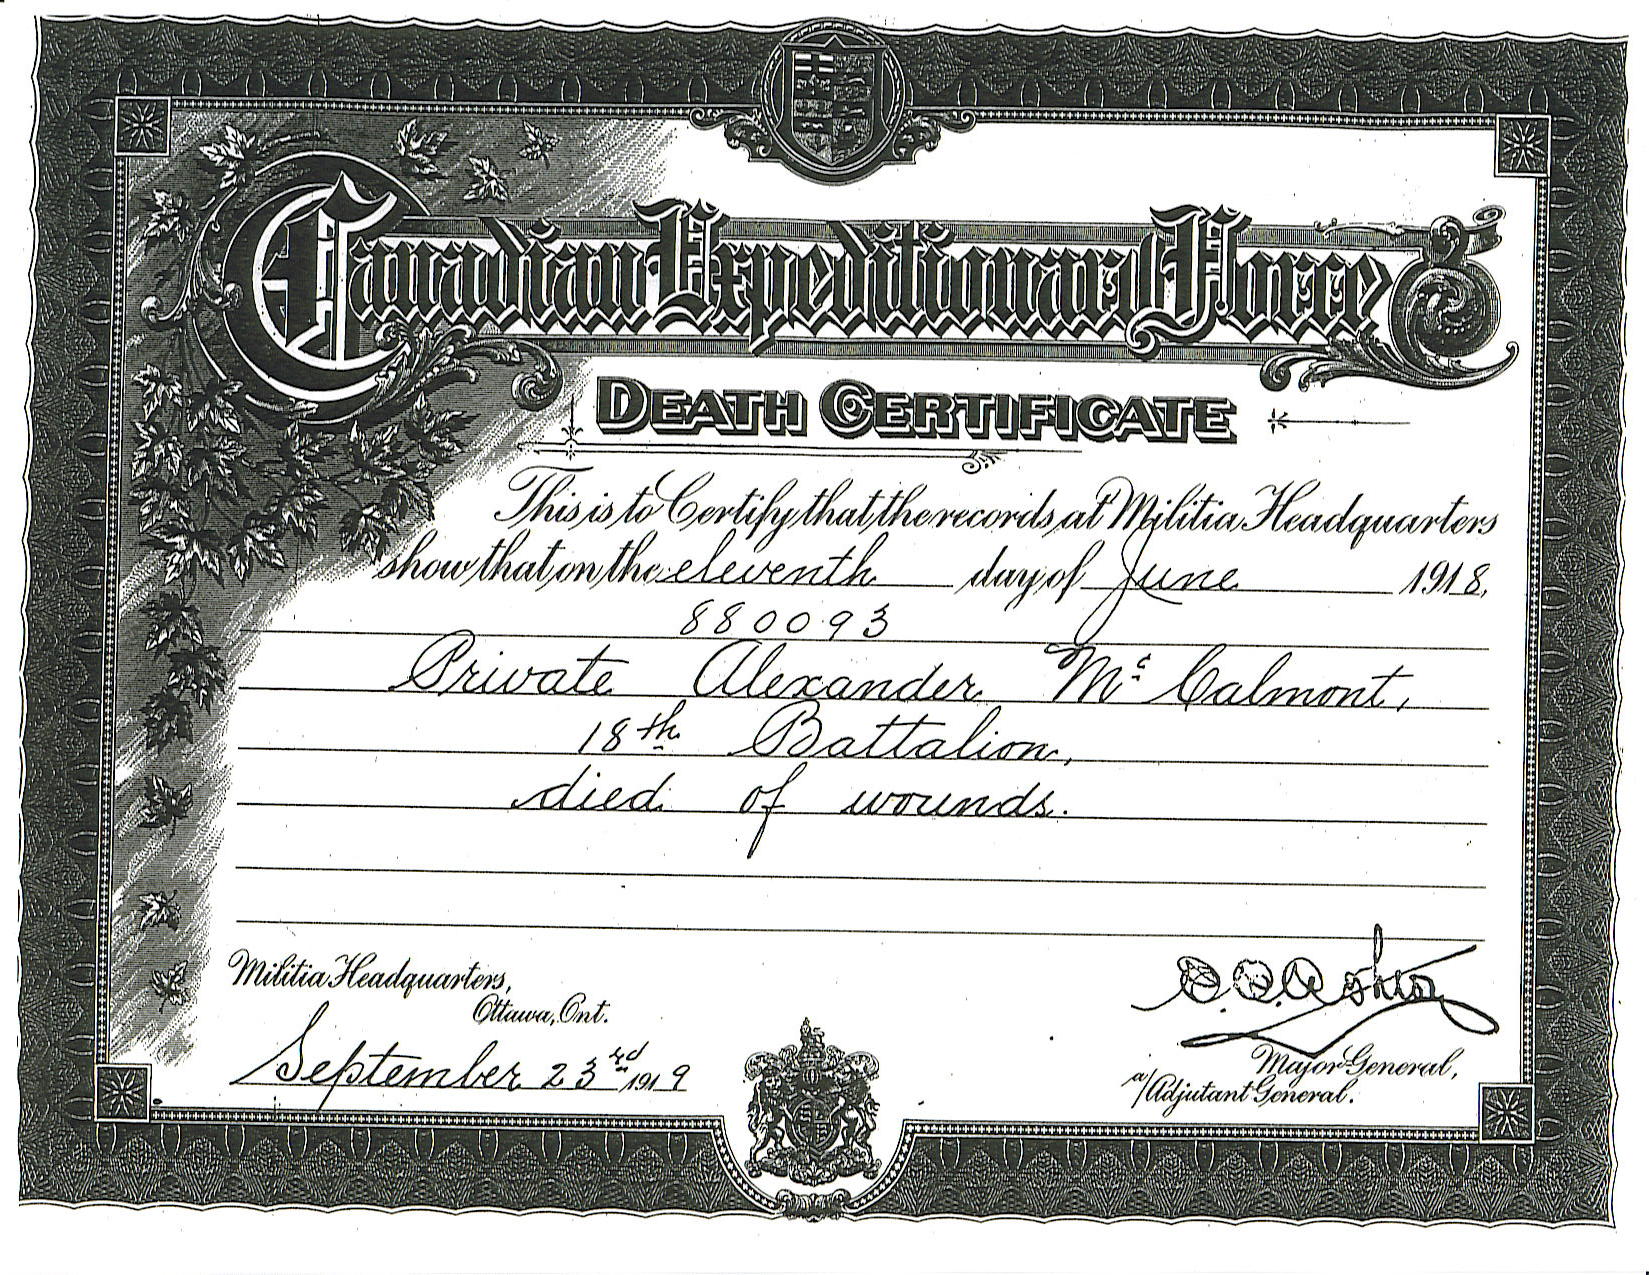 Canadian Expeditionary Force
DEATH CERTIFICATE
This is to Certify that the records at Militia Headquarters
show that on the eleventh day of June 1918,
880093
Private Alexander Mc Calmont,
18th Battalion,
died of wounds.
Militia Headquarters,
Ottawa, Ont.
September 23rd 1919
Major General,
a/Adjutant General.